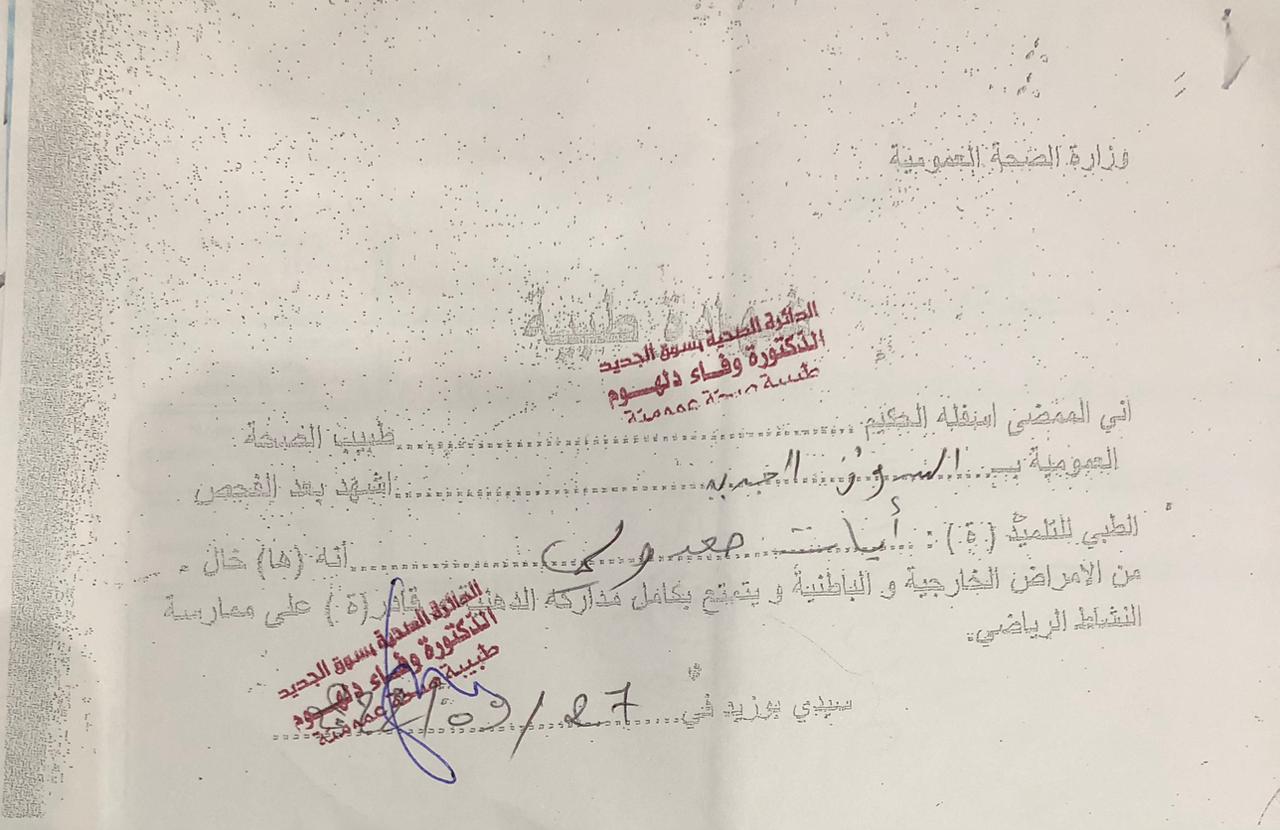 وزارة الصحة العمومية
شهادة طبية
الدائرة الصحية بسوق الجديد
الدكتورة وفاء دلهوم
طبيبة صحة عمومية
اني الممضي اسفله الحكيم ........................ طبيب الصحة
العمومية بـ السوق الجديد ........................ اشهد بعد الفحص
الطبي للتلميذ ( ة ) : أيات ........................ أنه (ها) خال
من الامراض الخارجية و الباطنية و يتمتع بكامل مداركه الذهنية قادر (ة ) على ممارسة
النشاط الرياضي.
الدائرة الصحية بسوق الجديد
الدكتورة وفاء دلهوم
طبيبة صحة عمومية
سيدي بوزيد في 27/09/